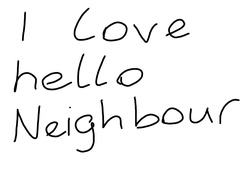 I love
hello
Neighbour